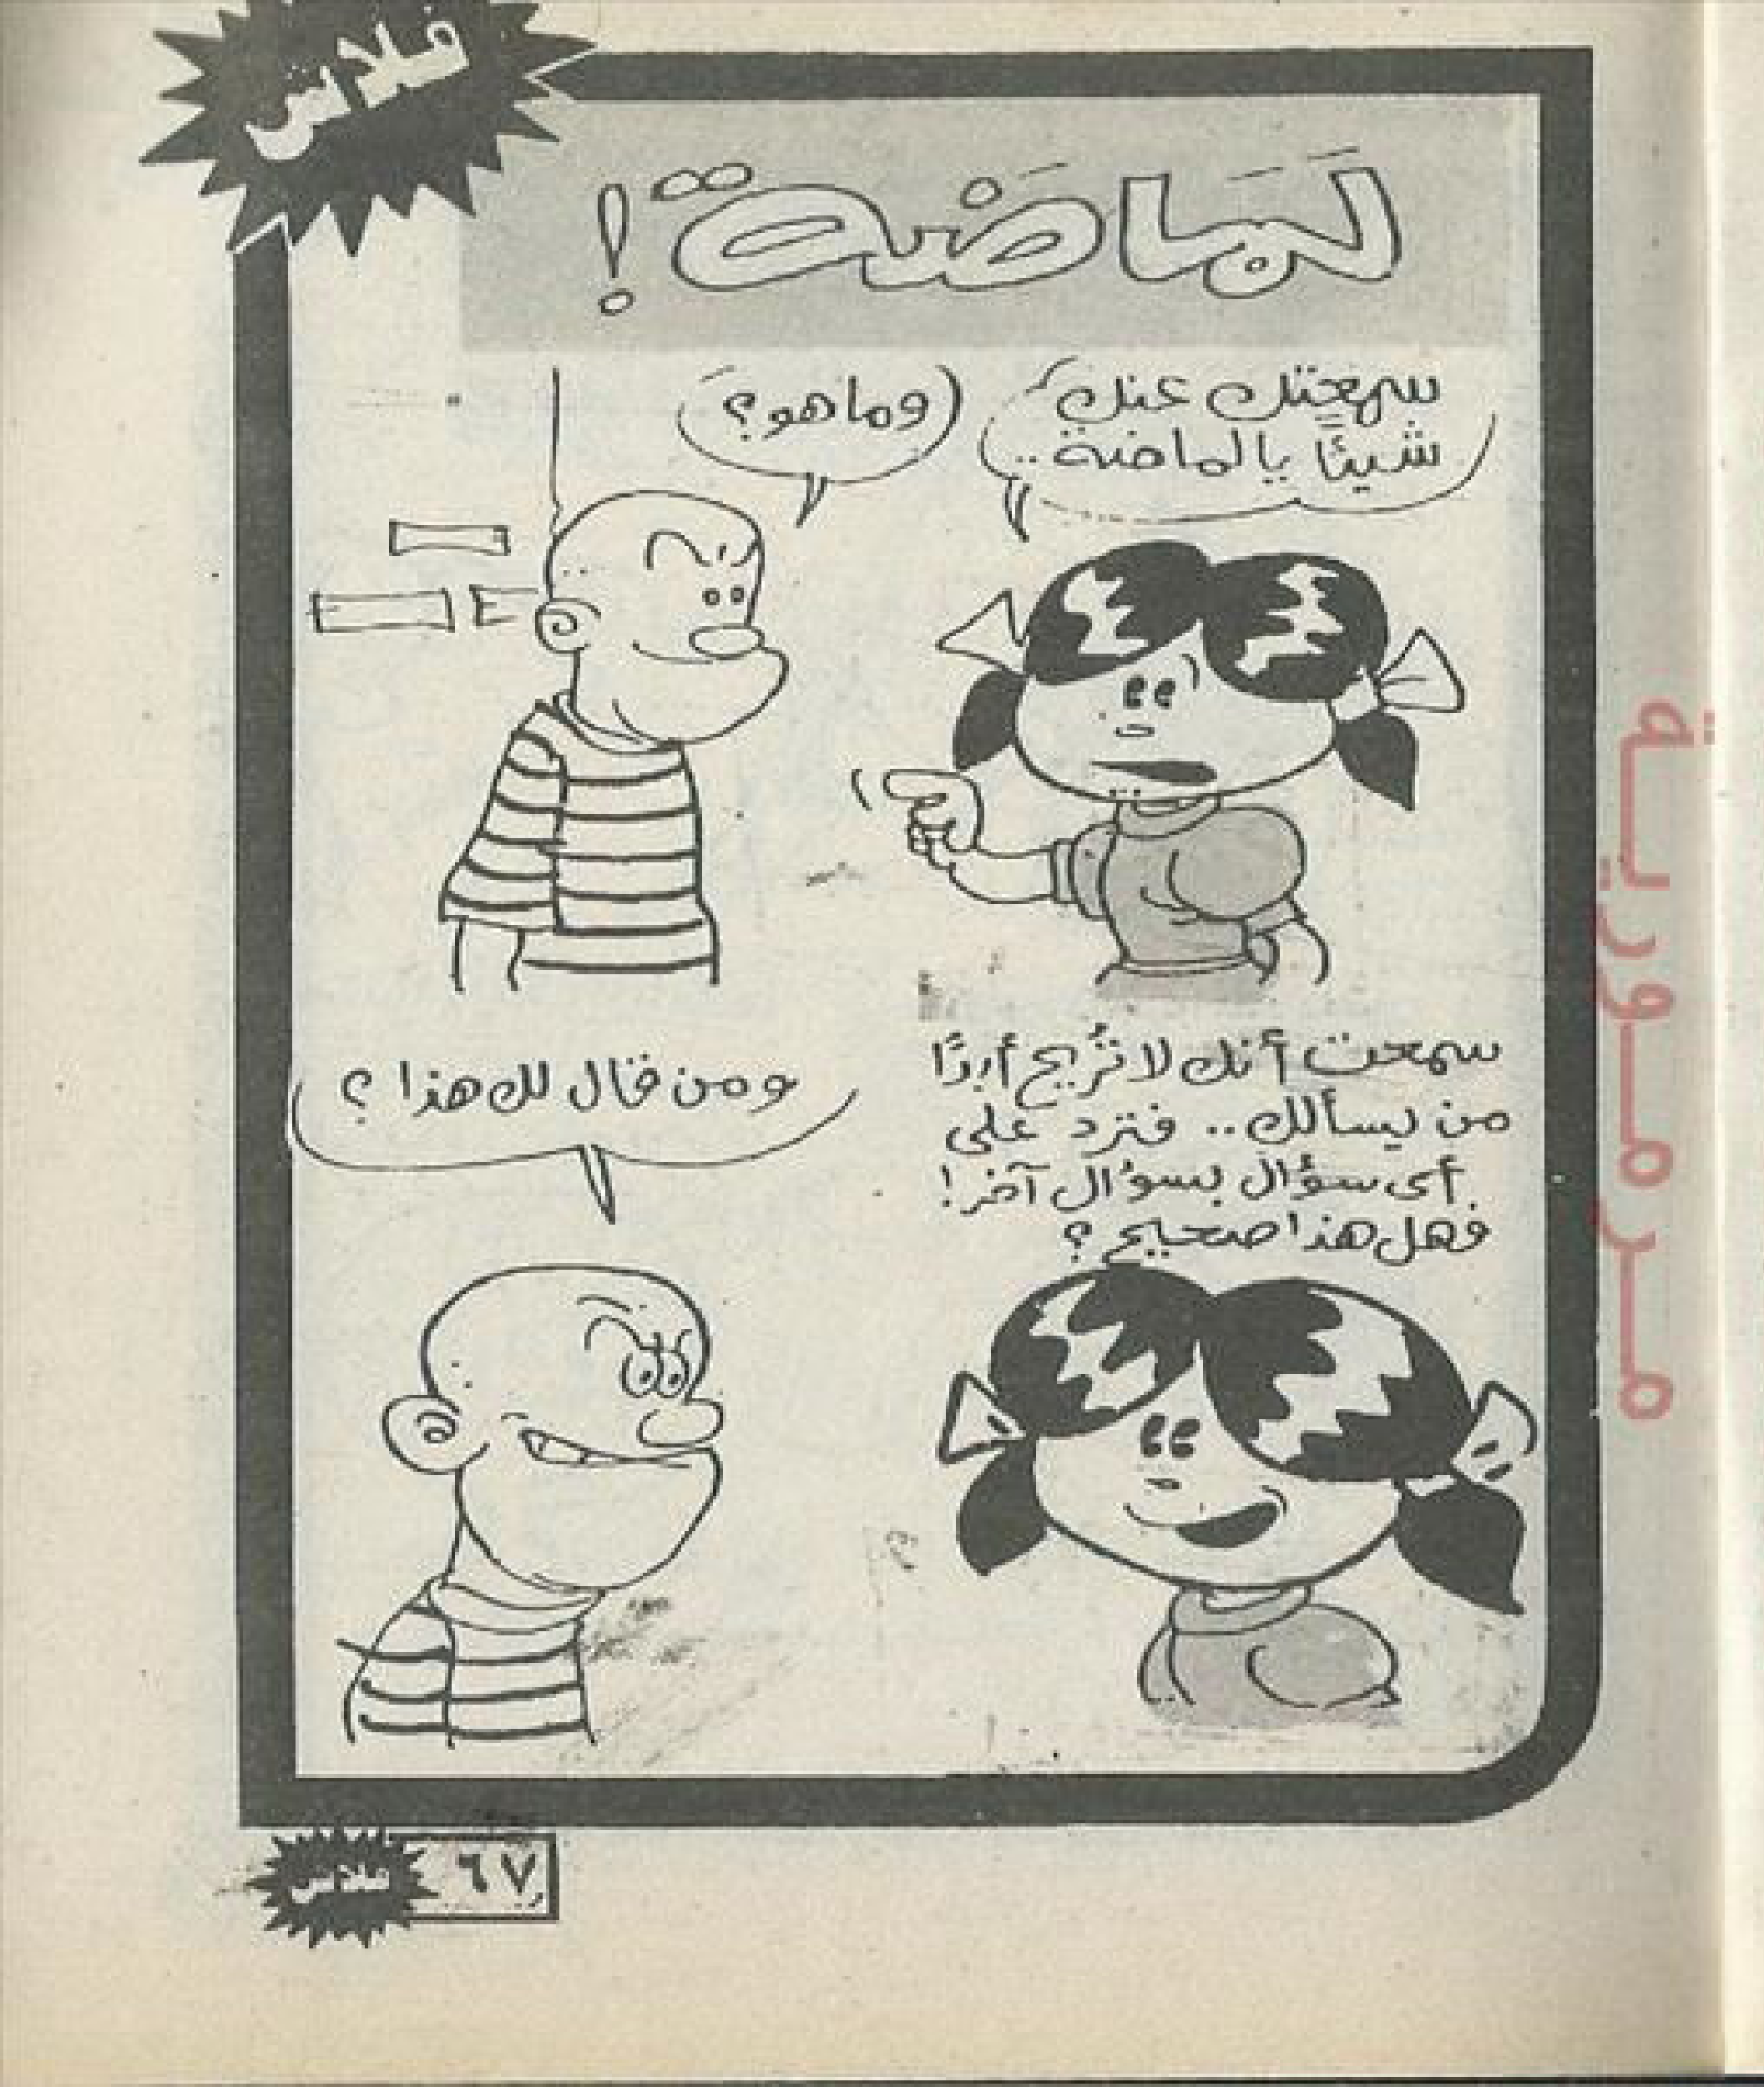 فلاش
لَمَاضَة!
سمعتك عنك
شيئًا يا لماضة..
وما هو؟
سمعت أنك لا تُريح أبدًا
من يسألك.. فترد على
أى سؤال بسؤال آخر!
فهل هذا صحيح؟
ومن قال لك هذا؟
٦٧
فلاش
مرمورية